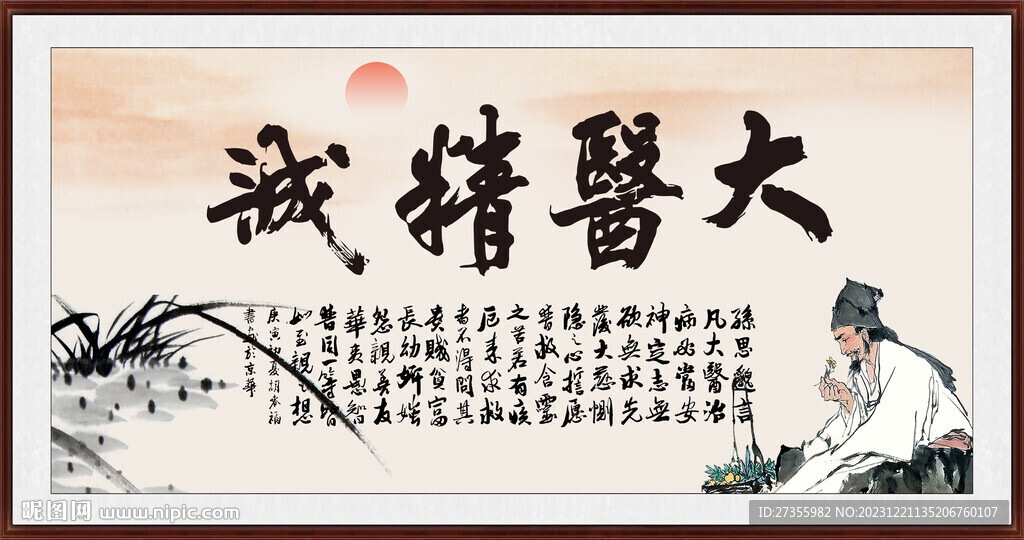 大醫精誠
孫思邈言
凡大醫治
病必當安
神定志無
欲無求先
發大慈惻
隱之心誓愿
普救含靈
之苦若有疾
厄来求救
者不得問其
貴賤貧富
長幼妍媸
怨親善友
華夷愚智
普同一等皆
如至親之想
庚寅初夏胡
書於京華
昵图网 www.nipic.com
ID:27355982 NO:20231221135206760107